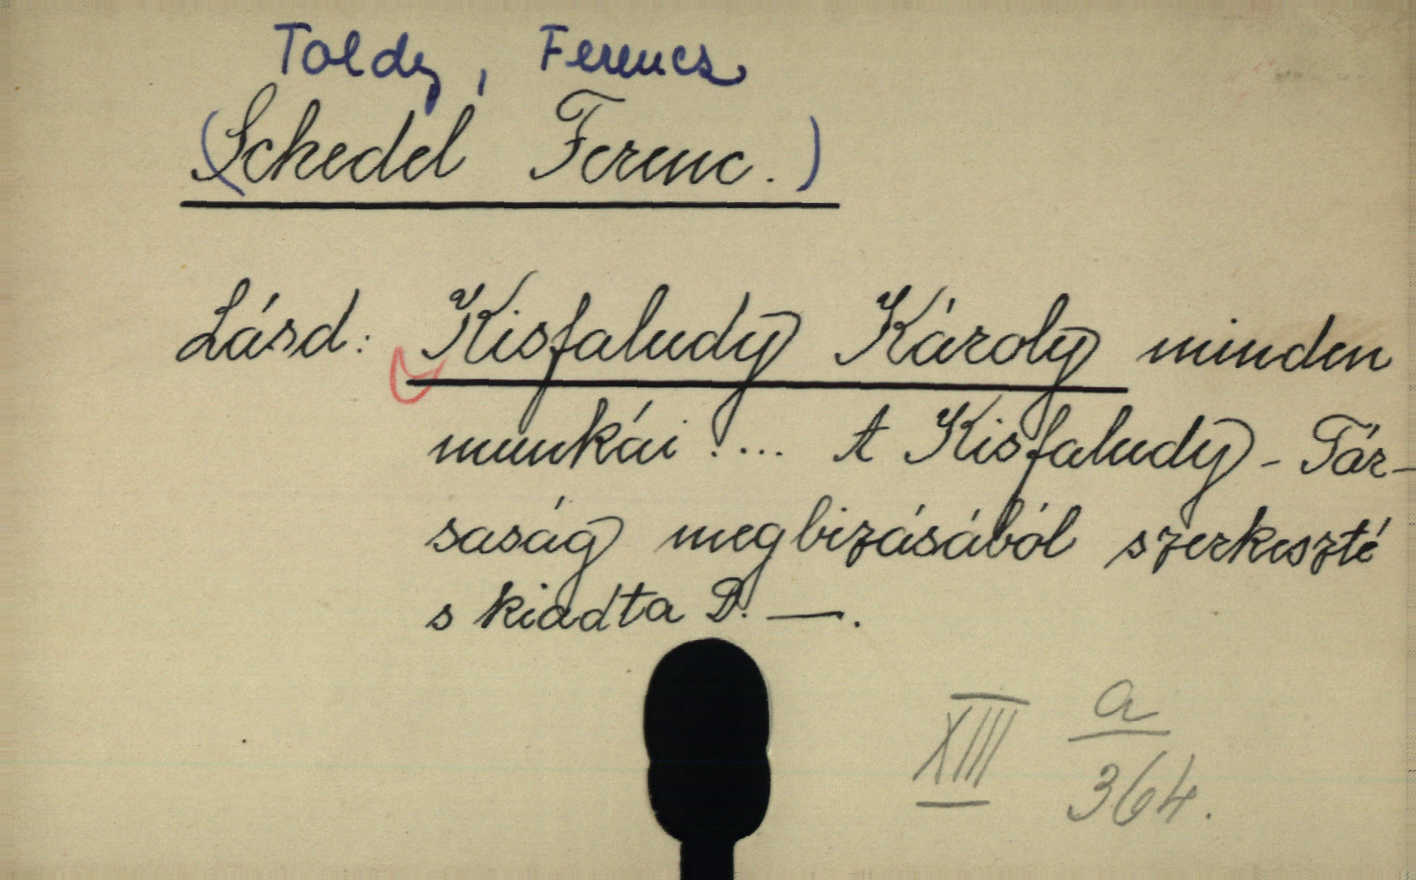 Toldy, Ferencz
(Schedel Ferenc.)
Lásd: Kisfaludy Károly minden
munkái.... A Kisfaludy-Tár-
saság megbizásából szerkeszté
s kiadta D. —.
XIII a
364.